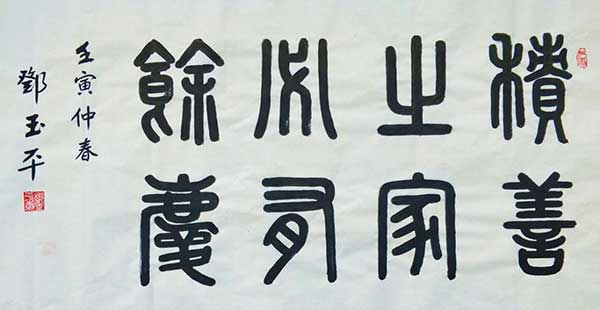 積善
之家
必有
餘慶
壬寅仲春
鄧玉平